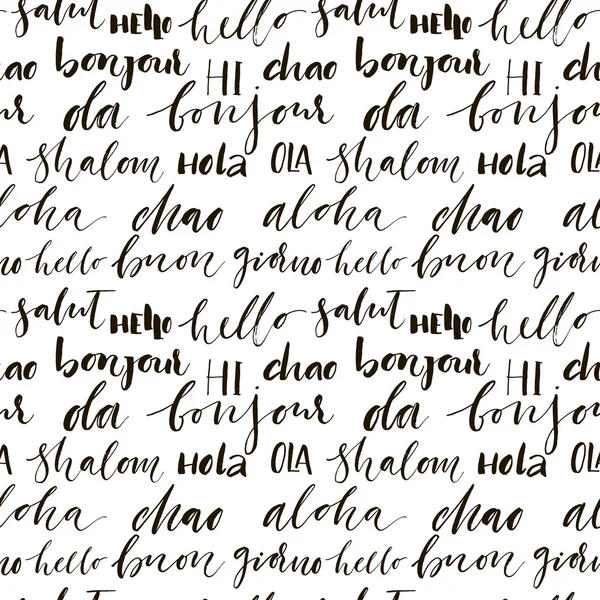 salut HELLO hello salut HELLO hello
ao bonjour HI chao bonjour HI ch
ur ola bonjour ola bonjou
A shalom Hola OLA shalom Hola OLA
loha chao aloha chao al
no hello buon giorno hello buon giorn
salut HELLO hello salut HELLO hello
ao bonjour HI chao bonjour HI ch
ur ola bonjour ola bonjou
A shalom Hola OLA shalom Hola OLA
loha chao aloha chao al
no hello buon giorno hello buon giorn